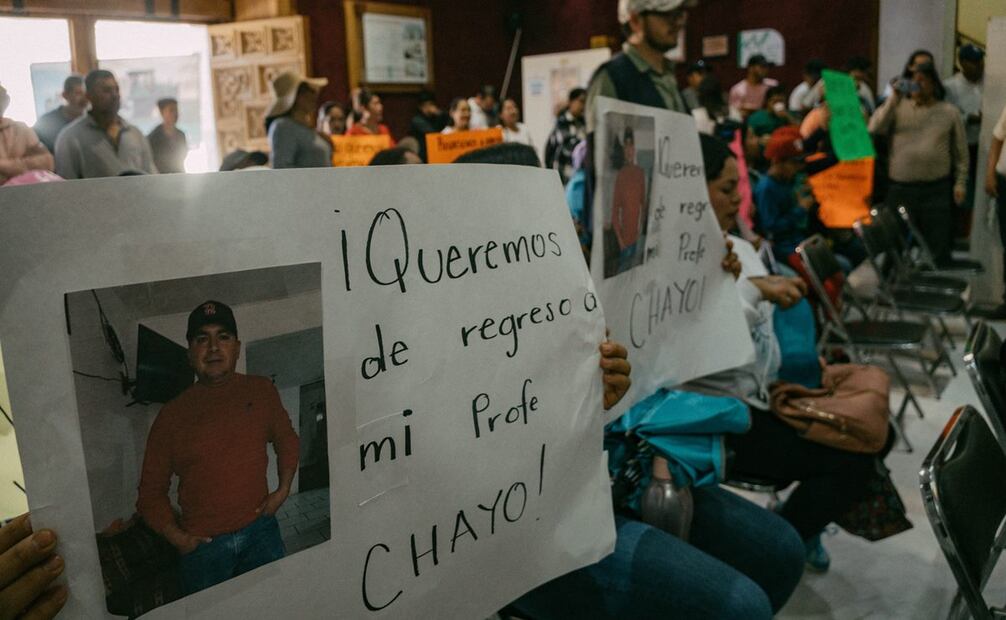 ¡Queremos
de regreso a
mi Profe
CHAYO!
¡Querem
de regr
mi Profe
CHAYO!